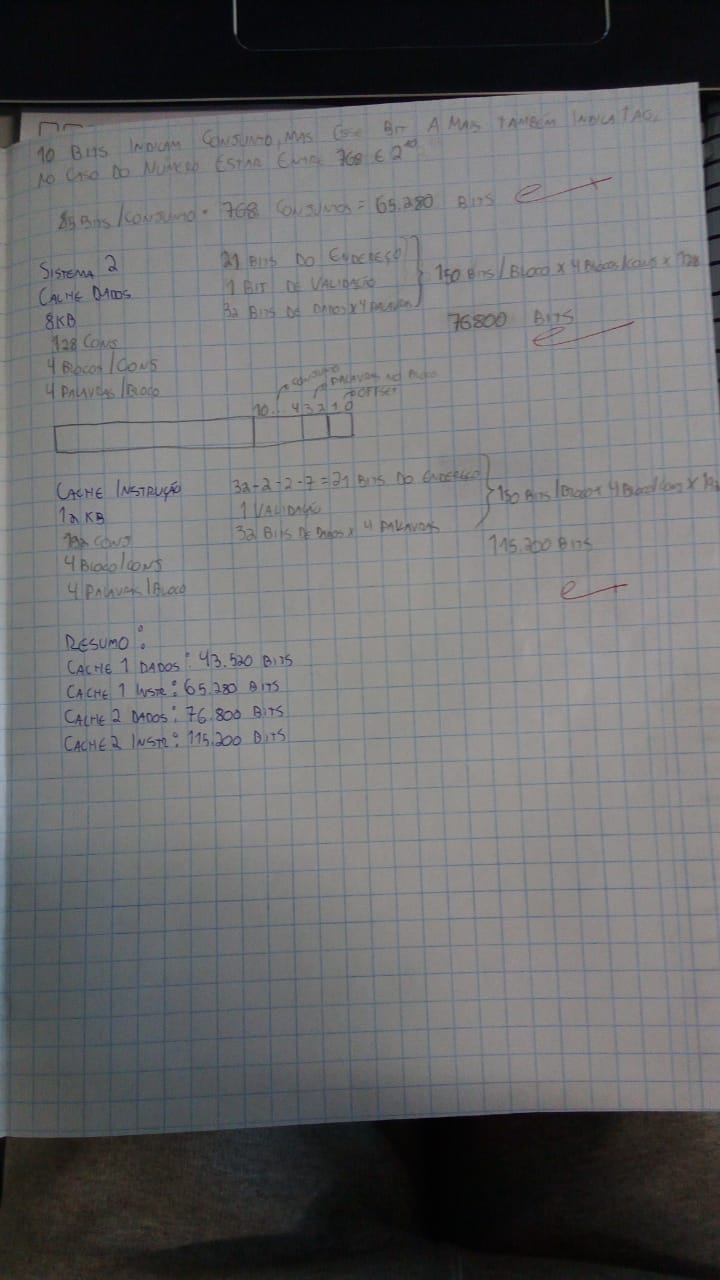 10 BITS INDICAM CONJUNTO, MAS ESSE BIT A MAIS TAMBÉM INDICA TAG,
NO CASO DO NÚMERO ESTAR ENTRE 768 E 2^10
85 BITS/CONJUNTO · 768 CONJUNTOS = 65.280 BITS
SISTEMA 2
CACHE DADOS
8KB
128 CONJ
4 BLOCOS/CONJ
4 PALAVRAS/BLOCO
21 BITS DO ENDEREÇO
1 BIT DE VALIDAÇÃO
32 BITS DE DADOS x 4 PALAVRAS
150 BITS/BLOCO x 4 BLOCOS/CONJ x 128
76800 BITS
CONJUNTO
PALAVRAS NO BLOCO
OFFSET
10... 4 3 2 1 0
CACHE INSTRUÇÃO
12 KB
192 CONJ
4 BLOCO/CONJ
4 PALAVRAS/BLOCO
32-2-2-7 = 21 BITS DO ENDEREÇO
1 VALIDAÇÃO
32 BITS DE DADOS x 4 PALAVRAS
150 BITS/BLOCO x 4 BLOCO/CONJ x
115.200 BITS
RESUMO:
CACHE 1 DADOS: 43.520 BITS
CACHE 1 INSTR: 65.280 BITS
CACHE 2 DADOS: 76.800 BITS
CACHE 2 INSTR: 115.200 BITS